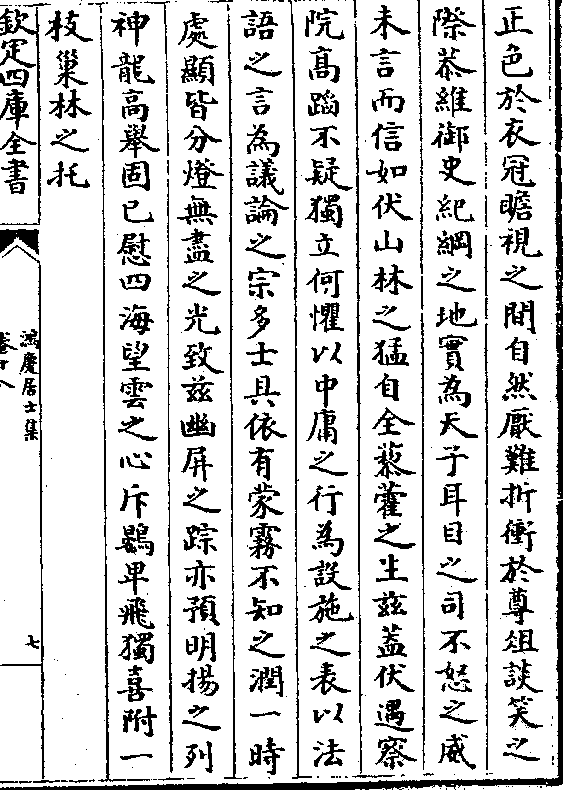 正色於衣冠瞻視之間自然厭難折衝於尊俎談笑之
際恭維御史紀綱之地實為天子耳目之司不怒之威
未言而信如伏山林之猛自全藜藿之生兹蓋伏遇察
院髙蹈不疑獨立何懼以中庸之行為設施之表以法
語之言為議論之宗多士具依有蒙霧不知之潤一時
處顯皆分燈無盡之光致兹幽屏之踪亦預明揚之列
神龍高舉固已慰四海望雲之心斥鷃卑飛獨喜附一
枝巢林之托
欽定四庫全書
鴻慶居士集
卷十八
七